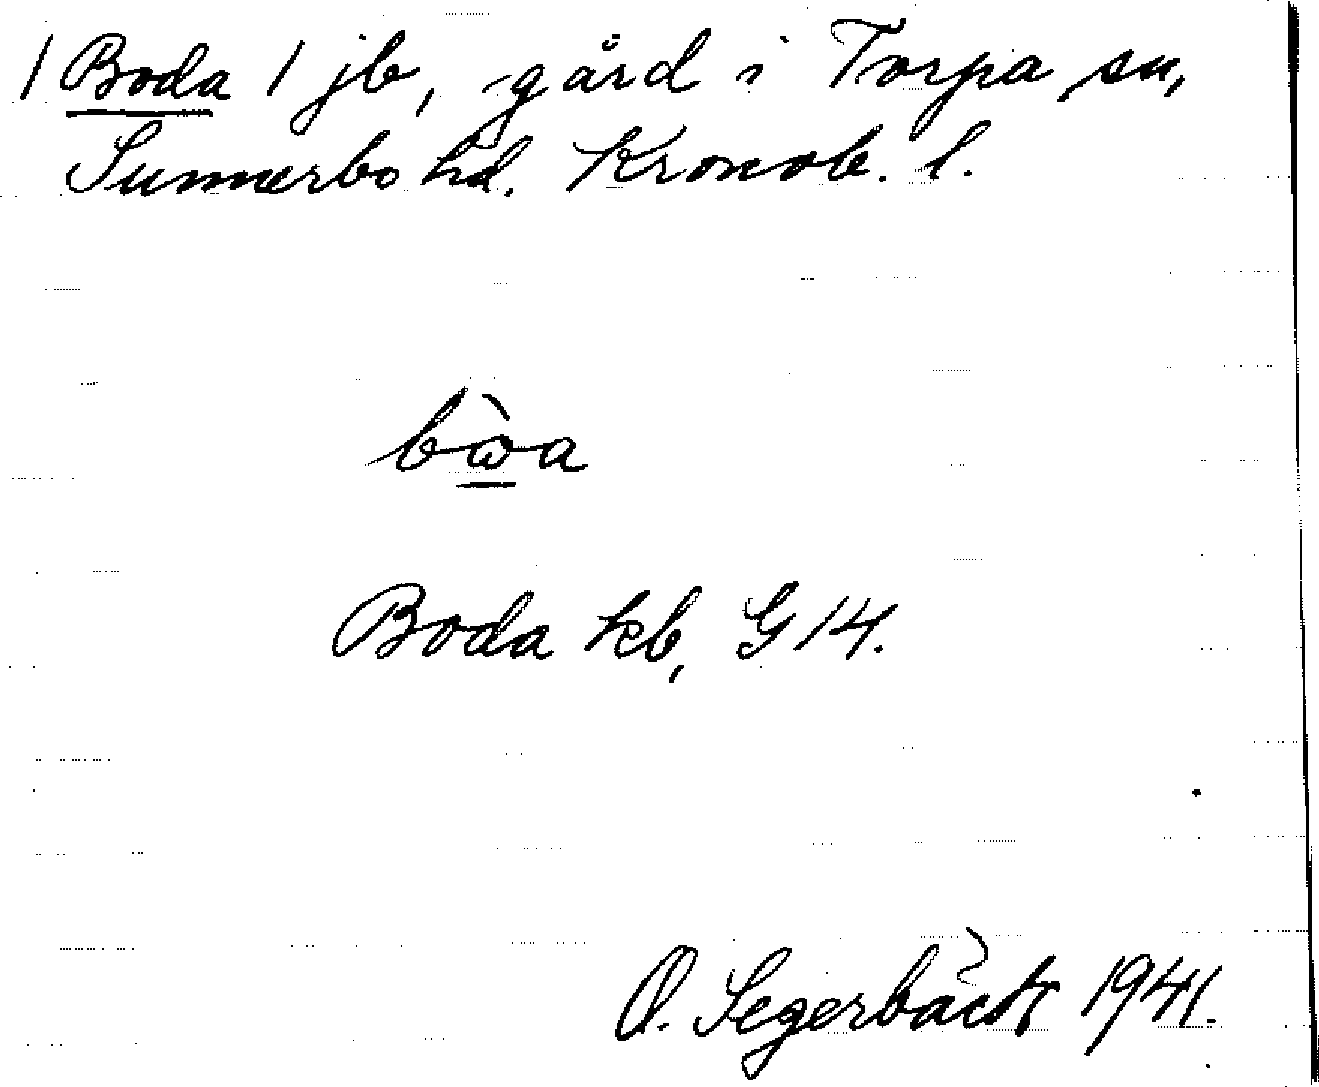 / Boda / jb, gård i Torpa sn,
Sunnerbo hd. Kronob. l.
bὼa
Boda kb, G 14.
O. Segerbäck 1941.